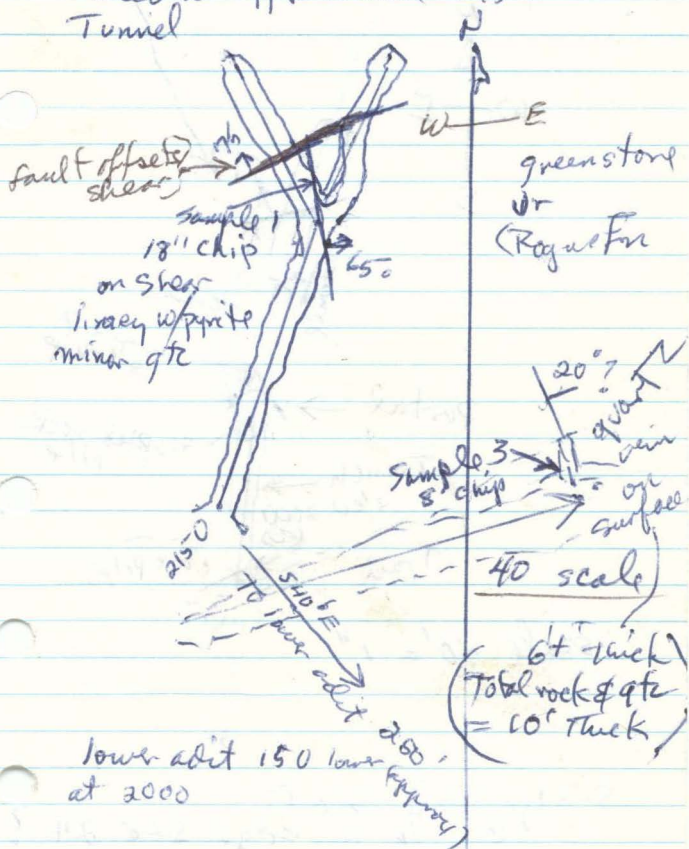 Tunnel
N
W E
75
fault offsets
shear
greenstone
or
(Rogue Fm
Sample 1
18" chip
on shear
limey w/pyrite
minor qtz
65°
20°?
quartz
vein
on
surface
Sample 3
8' chip
2150
S40°E
To lower adit 200'
(approx)
40 scale
6'+ Thick
Total rock & qtz
= 10' Thick
lower adit 150 lower
at 2000